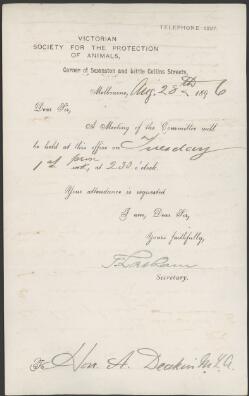 TELEPHONE 1327.
VICTORIAN
SOCIETY FOR THE PROTECTION
OF ANIMALS,
Corner of Swanston and Little Collins Streets,
Melbourne, Aug. 28th 1896
Dear Sir,
A Meeting of the Committee will
be held at this office on Tuesday
1st prox inst., at 2.30 o'clock.
Your attendance is requested
I am, Dear Sir,
Yours faithfully,
Secretary.
To Hon. A. Deakin M.L.A.